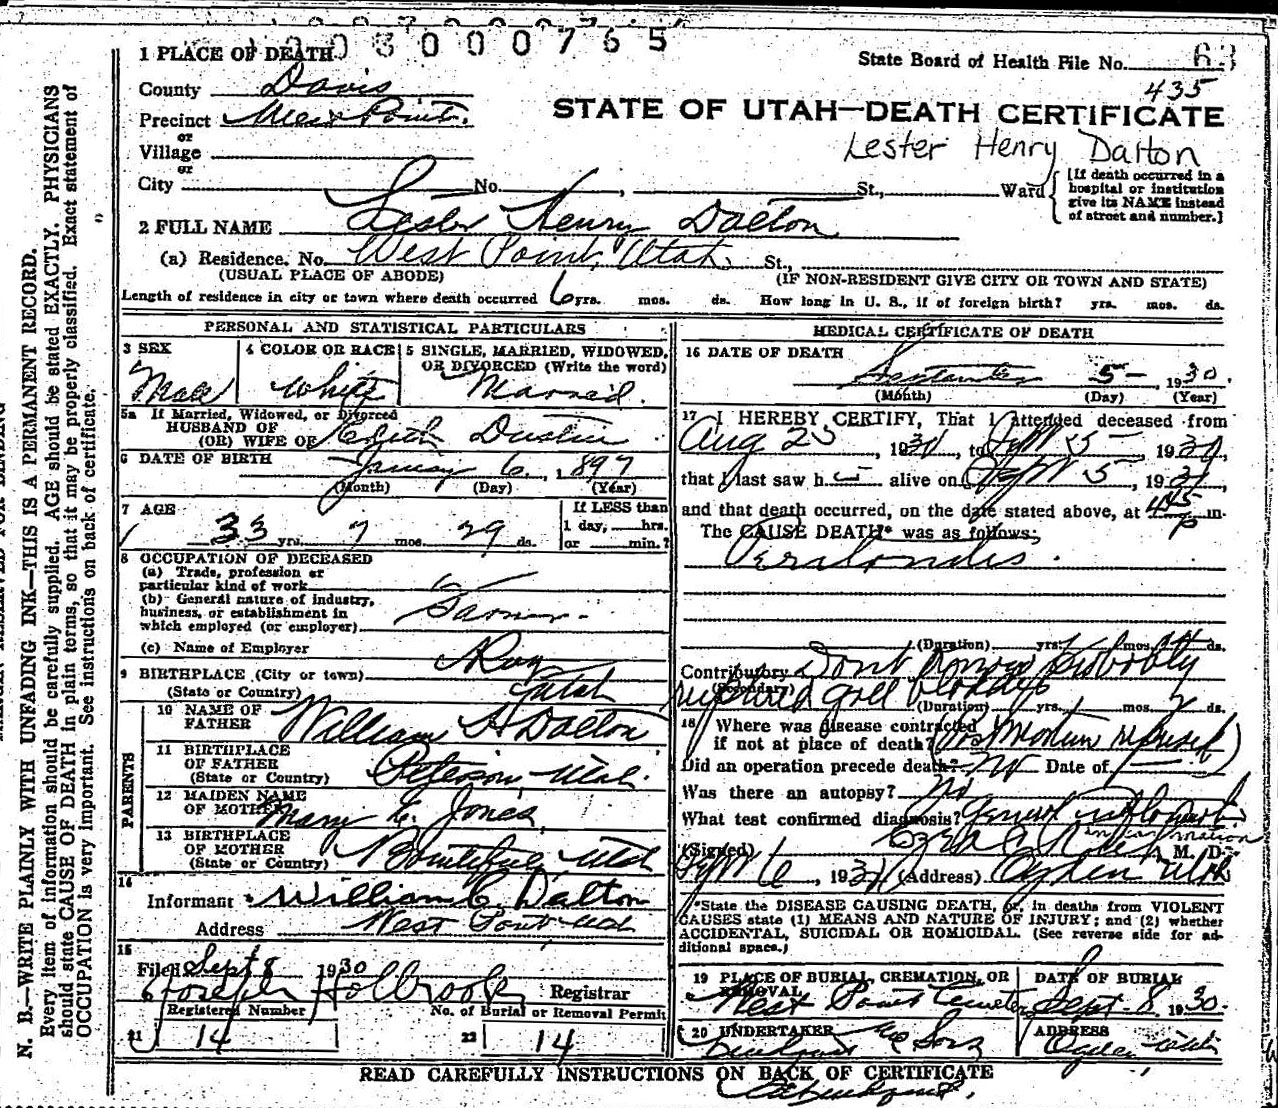 1003000765
1 PLACE OF DEATH
State Board of Health File No. 63
435
County Davis
STATE OF UTAH—DEATH CERTIFICATE
Precinct West Point.
or
Village
Lester Henry Dalton
or
City No. , St., Ward
[If death occurred in a
hospital or institution
give its NAME instead
of street and number.]
2 FULL NAME Lester Henry Dalton
(a) Residence. No. West Point, Utah. St.,
(USUAL PLACE OF ABODE) (IF NON-RESIDENT GIVE CITY OR TOWN AND STATE)
Length of residence in city or town where death occurred 6 yrs. mos. ds. How long in U. S., if of foreign birth? yrs. mos. ds.
PERSONAL AND STATISTICAL PARTICULARS
3 SEX
Male
4 COLOR OR RACE
White
5 SINGLE, MARRIED, WIDOWED,
OR DIVORCED (Write the word)
Married.
5a If Married, Widowed, or Divorced
HUSBAND OF
(OR) WIFE OF Edith Dustin
6 DATE OF BIRTH
January 6, 1897
(Month) (Day) (Year)
7 AGE
33 yrs. 7 mos. 29 ds.
If LESS than
1 day, hrs.
or min.?
8 OCCUPATION OF DECEASED
(a) Trade, profession or
particular kind of work
(b) General nature of industry,
business, or establishment in
which employed (or employer)
Farmer
(c) Name of Employer
9 BIRTHPLACE (City or town) Roy
(State or Country) Utah
PARENTS
10 NAME OF
FATHER William H Dalton
11 BIRTHPLACE
OF FATHER
(State or Country) Peterson, Utah.
12 MAIDEN NAME
OF MOTHER Mary E. Jones
13 BIRTHPLACE
OF MOTHER
(State or Country) Bountiful, Utah
14
Informant William C. Dalton
Address West Point Utah
15
Filed Sept 8 1930
Joseph Holbrook Registrar
Registered Number No. of Burial or Removal Permit
21 14 22 14
MEDICAL CERTIFICATE OF DEATH
16 DATE OF DEATH
September 5- , 1930.
(Month) (Day) (Year)
17 I HEREBY CERTIFY, That I attended deceased from
Aug 25 , 1930, to Sept 5- , 1930,
that I last saw h alive on Sept 5 , 1930,
and that death occurred, on the date stated above, at 445 p m.
The CAUSE DEATH* was as follows:
Peritonitis.
(Duration) yrs. mos. ds.
Contributory Dont know Probably
(Secondary) ruptured gall bladder
(Duration) yrs. mos. ds.
18 Where was disease contracted
if not at place of death? (Post Mortem refused)
Did an operation precede death? No Date of
Was there an autopsy? No
What test confirmed diagnosis?
(Signed) M. D.
Sept 6 , 1930 (Address) Ogden Utah
*State the DISEASE CAUSING DEATH, or, in deaths from VIOLENT
CAUSES state (1) MEANS AND NATURE OF INJURY; and (2) whether
ACCIDENTAL, SUICIDAL OR HOMICIDAL. (See reverse side for ad-
ditional space.)
19 PLACE OF BURIAL, CREMATION, OR
REMOVAL
West Point Cemetery
DATE OF BURIAL
Sept-8 1930.
20 UNDERTAKER
& Sons
ADDRESS
Ogden Utah
READ CAREFULLY INSTRUCTIONS ON BACK OF CERTIFICATE
N. B.—WRITE PLAINLY WITH UNFADING INK—THIS IS A PERMANENT RECORD.
Every item of information should be carefully supplied. AGE should be stated EXACTLY. PHYSICIANS
should state CAUSE OF DEATH in plain terms, so that it may be properly classified. Exact statement of
OCCUPATION is very important. See instructions on back of certificate.